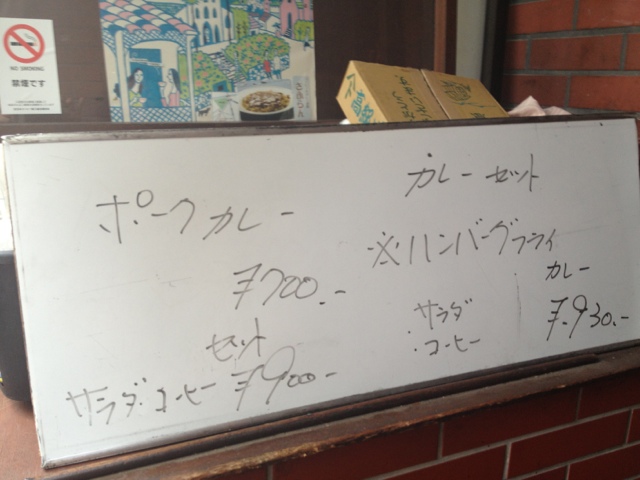 NO SMOKING
禁煙です
ポークカレー
¥700.-
セット
サラダ・コーヒー ¥900-
カレーセット
※ハンバーグフライ
カレー
・サラダ
・コーヒー
¥.930.-